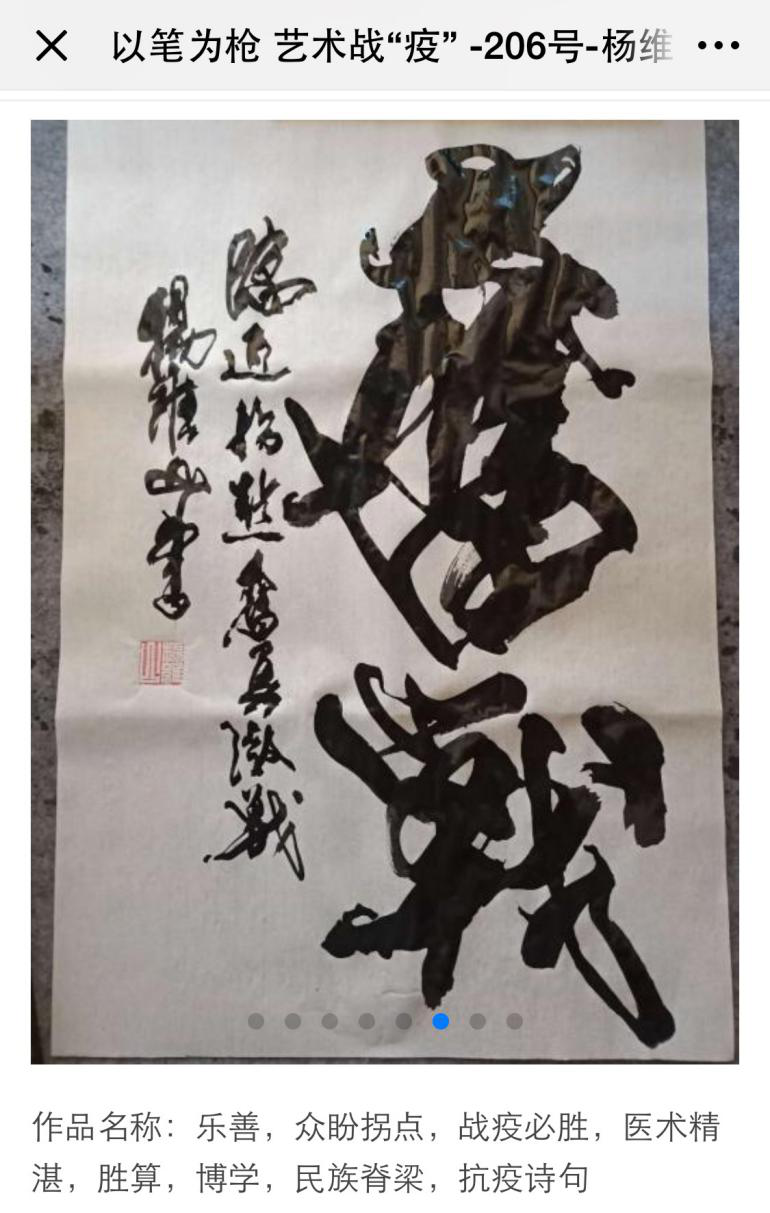 以笔为枪 艺术战“疫” -206号-杨维
戰
近拐點奮激戰
楊維山書
作品名称：乐善，众盼拐点，战疫必胜，医术精
湛，胜算，博学，民族脊梁，抗疫诗句